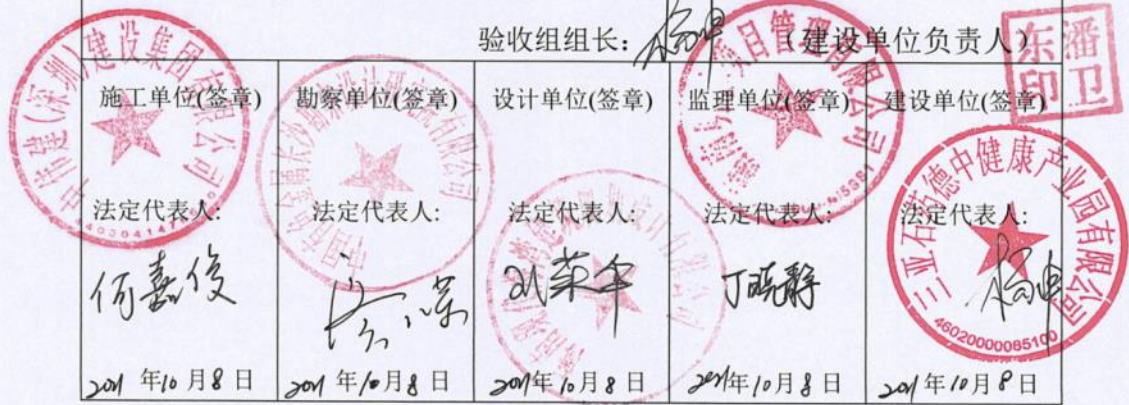 验收组组长：杨申（建设单位负责人）
潘卫东印
施工单位(签章) 勘察单位(签章) 设计单位(签章) 监理单位(签章) 建设单位(签章)
法定代表人: 法定代表人: 法定代表人: 法定代表人: 法定代表人:
何嘉俊 丁晓静 杨申
2021年10月8日 2021年10月8日 2021年10月8日 2021年10月8日 2021年10月8日
(深圳)建设集团有限公司
长沙勘察设计研究院有限公司
项目管理有限公司
三亚石药德中健康产业园有限公司
46020000085100